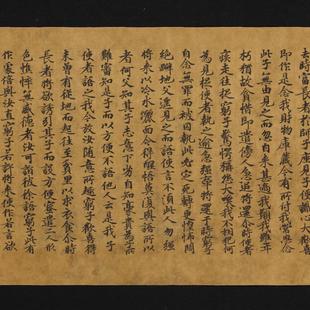 去時富長者於師子座見子便識心大歡喜
即作是念我財物庫藏今有所付我常思念
此子無由見之而忽自來甚適我願我雖年
朽猶故貪惜即遣傍人急追將還尒時使者
疾走往捉窮子驚愕稱怨大喚我不相犯何
為見捉使者執之逾急強牽將還于時窮子
自念無罪而被囚執此必定死轉更惶怖悶
絕躃地父遙見之而語使言不須此人勿強
將來以冷水灑面令得醒悟莫復與語所以
者何父知其子志意下劣自知豪貴為子所
難審知是子而以方便不語他人云是我子
使者語之我今放汝隨意所趣窮子歡喜得
未曾有從地而起往至貧里以求衣食尒時
長者將欲誘引其子而設方便密遣二人形
色憔悴無威德者汝可詣彼徐語窮子此有
作處倍與汝直窮子若許將來使作若言欲